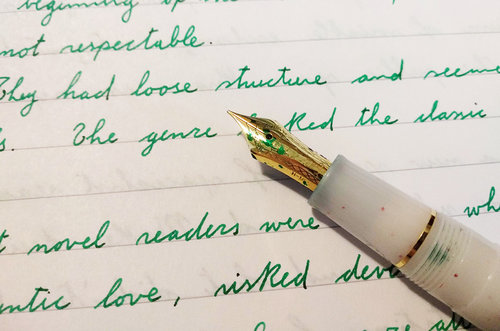 beginning of the
not respectable.
They had loose structure and seeme
s. The genre ked the classic
t novel readers were wh
ntic love, risked deve
all